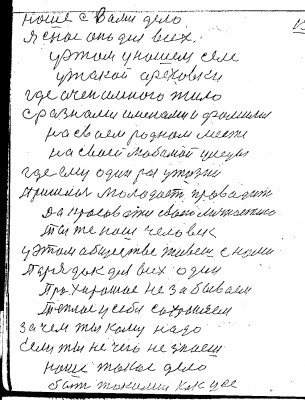 наше с Вами дело
Я спою
для всех
у этом у нашем селе
у такой ореховки
где очен много жило
с разними именами и фамили
на своем родном месте
на своей любимой улеце
где ему один раз у жизни
пришлось молодость проводит
Да красоватя своей личностю
Ты же наш человек
у этом обществе живеш с нами
Порядок для всех один
Про хорошое не забываем
Теплое у себя сохроняем
зачем ты кому надо
Если ты не чего не знаеш
наше такое дело
быт такими как